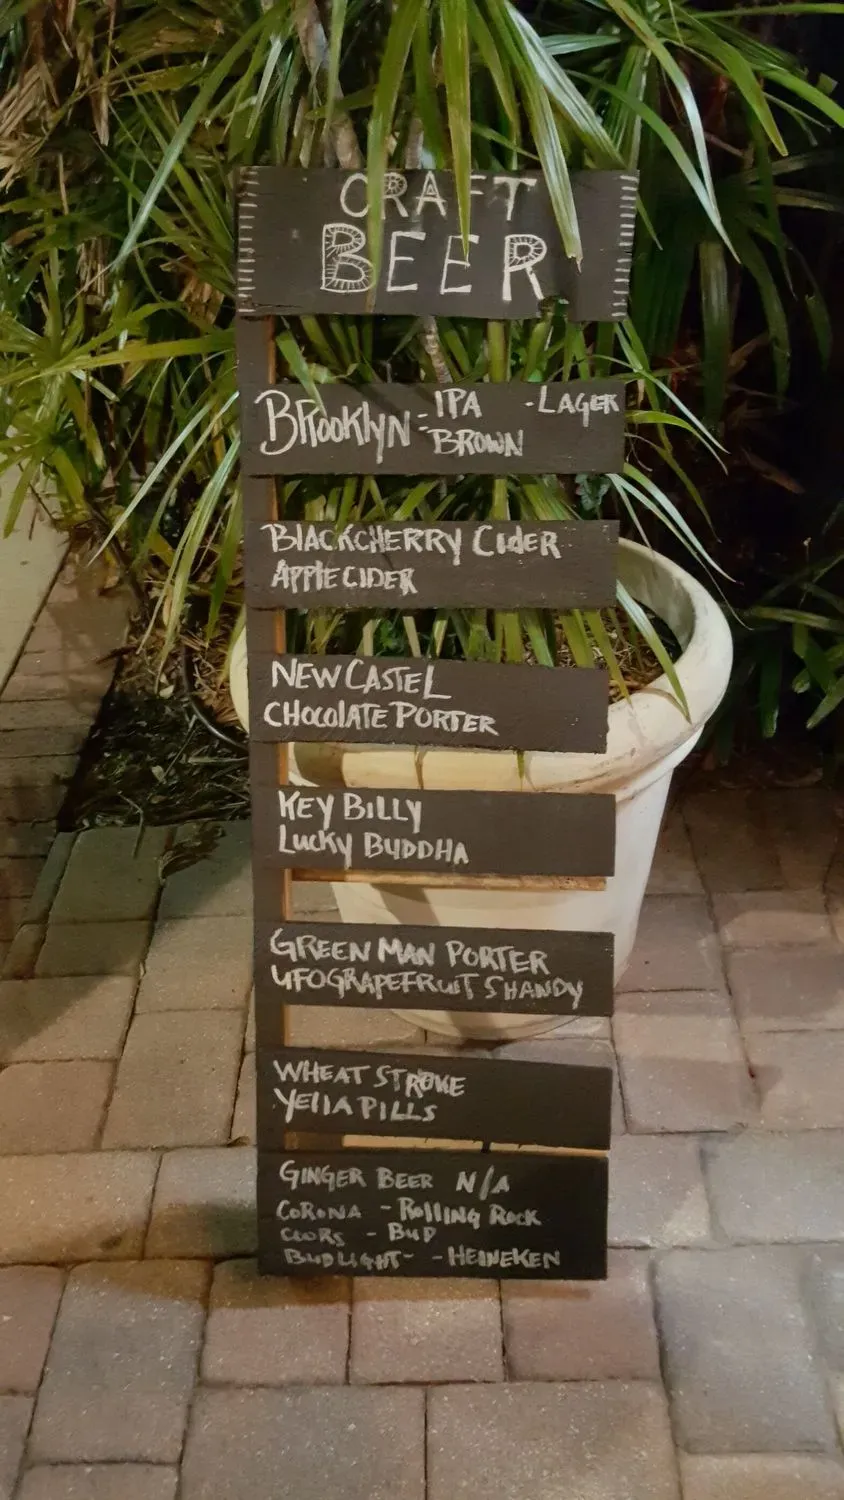 CRAFT
BEER
BROOKLYN - IPA - LAGER
- BROWN
BLACKCHERRY CIDER
APPLE CIDER
NEW CASTEL
CHOCOLATE PORTER
KEY BILLY
LUCKY BUDDHA
GREEN MAN PORTER
UFO GRAPEFRUIT SHANDY
WHEAT STROKE
YELLA PILLS
GINGER BEER N/A
CORONA - ROLLING ROCK
COORS - BUD
BUD LIGHT - HEINEKEN